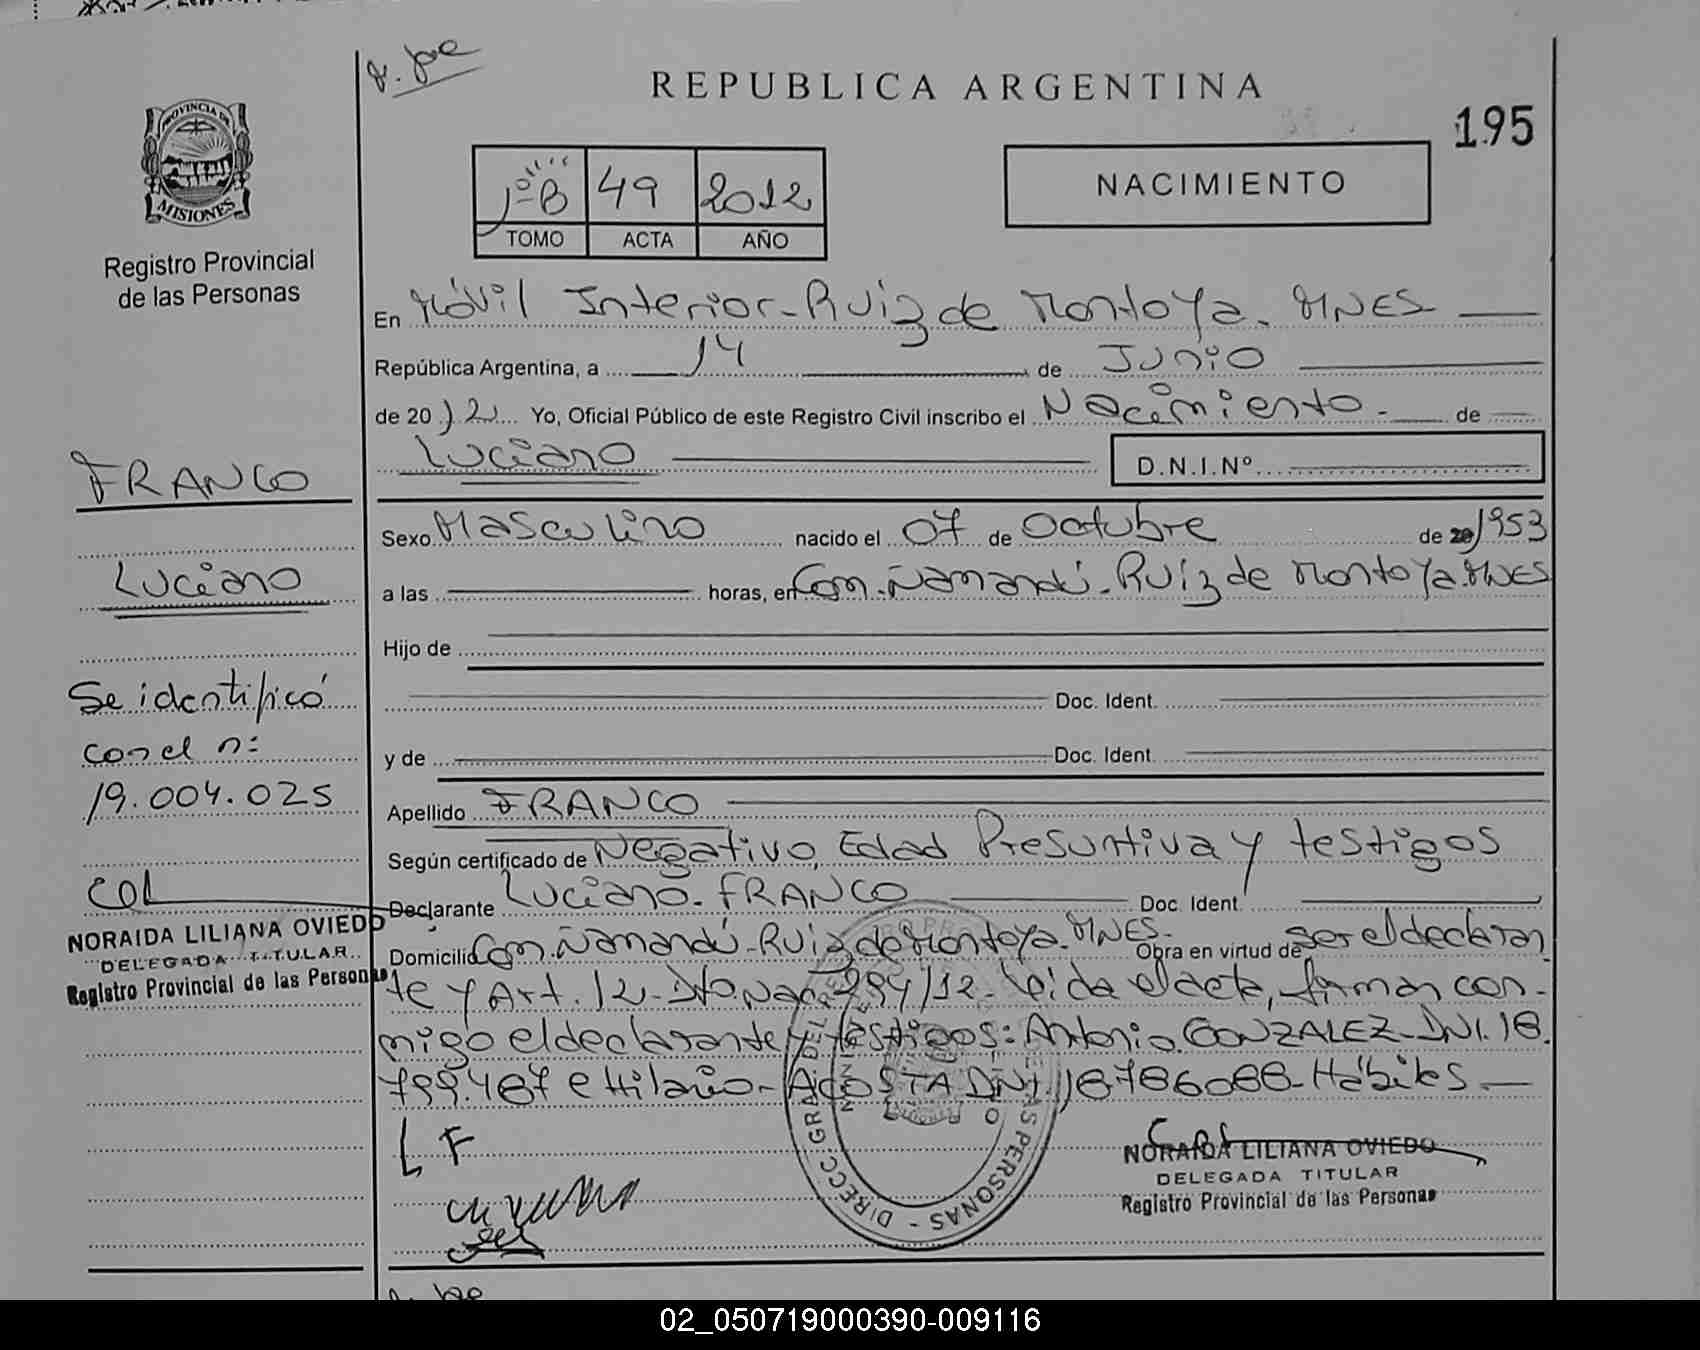 REPUBLICA ARGENTINA
195
PROVINCIA DE
MISIONES
Registro Provincial
de las Personas
1º B 49 2012
TOMO ACTA AÑO
NACIMIENTO
En Móvil Interior-Ruiz de Montoya. MNES
República Argentina, a 14 de Junio
de 2012 Yo, Oficial Público de este Registro Civil inscribo el Nacimiento.- de
Luciano D.N.I.Nº
FRANCO
Luciano
Se identificó
con el n:
19.004.025
NORAIDA LILIANA OVIEDO
DELEGADA TITULAR
Registro Provincial de las Personas
Sexo Masculino nacido el 07 de Octubre de 20 1953
a las horas, en Com. Ñamandú-Ruiz de Montoya.MNES
Hijo de
Doc. Ident.
y de Doc. Ident.
Apellido FRANCO
Según certificado de Negativo, Edad Presuntiva y testigos
Declarante Luciano. FRANCO Doc. Ident.
Domicilio Com. Ñamandú-Ruiz de Montoya. MNES. Obra en virtud de ser el declaran
te y Art. 12- Dto. Nac. 294/12- Leida el acta, firman con-
migo el declarante y testigos: Antonio. GONZALEZ-DNI. 18.
799.487 e Hilario-ACOSTA DNI. 18786088-Hábiles
L F
NORAIDA LILIANA OVIEDO
DELEGADA TITULAR
Registro Provincial de las Personas
02_050719000390-009116